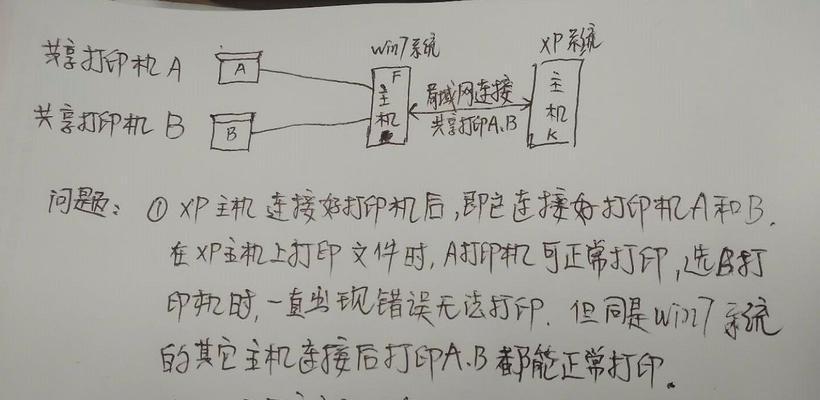 win7系统
XP系统
共享打印机 A
A
F
主机
局域网连接
共享打印A.B
主机
K
共享打印机 B
B
问题: ① XP主机连接好打印机后,即已连接好打印机A和B.
在XP主机上打印文件时,A打印机可正常打印,选B打
印机时,一直出现错误无法打印. 但同是win7系统
的其它主机连接后打印A.B都能正常打印.